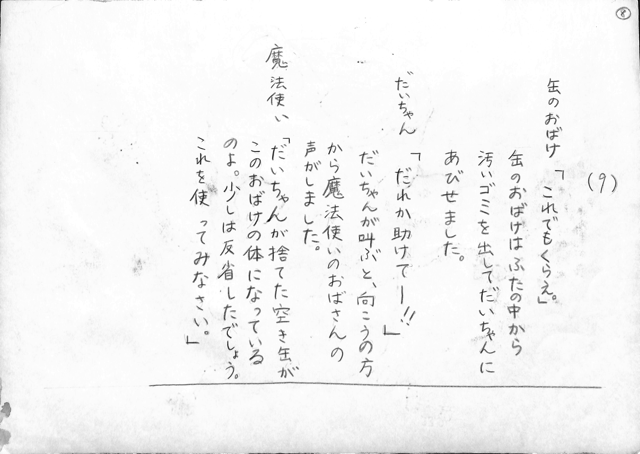 ⑧
(9)
缶のおばけ「これでもくらえ。」
缶のおばけはふたの中から
汚いゴミを出してだいちゃんに
あびせました。
だいちゃん「だれか助けてー!!」
だいちゃんが叫ぶと、向こうの方
から魔法使いのおばさんの
声がしました。
魔法使い「だいちゃんが捨てた空き缶が
このおばけの体になっている
のよ。少しは反省したでしょう。
これを使ってみなさい。」